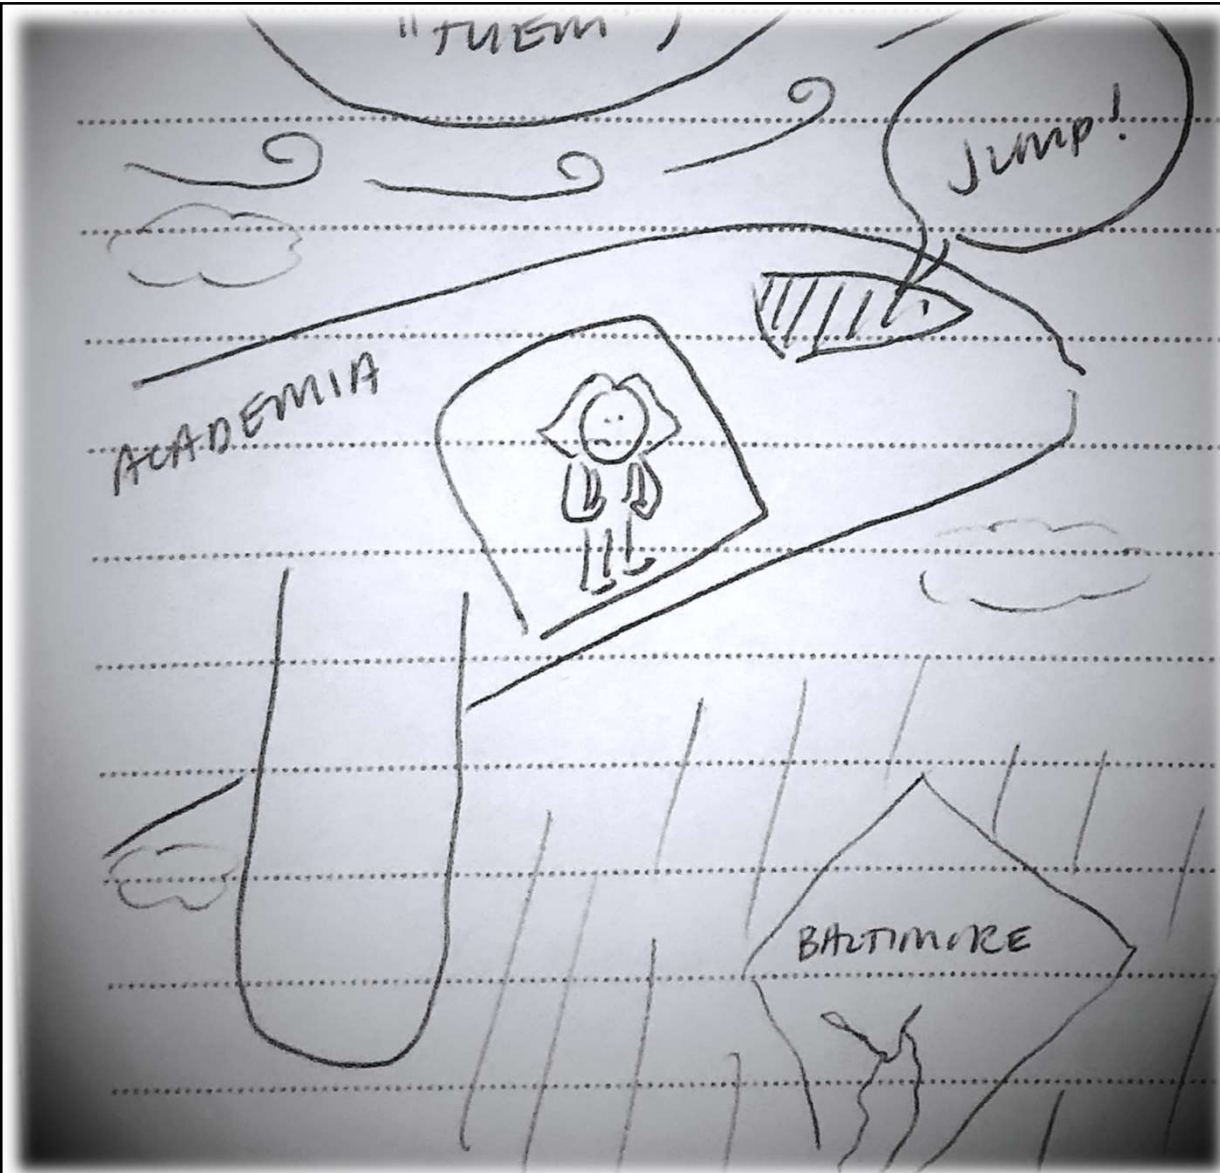 "THEM"
Jump!
ACADEMIA
BALTIMORE